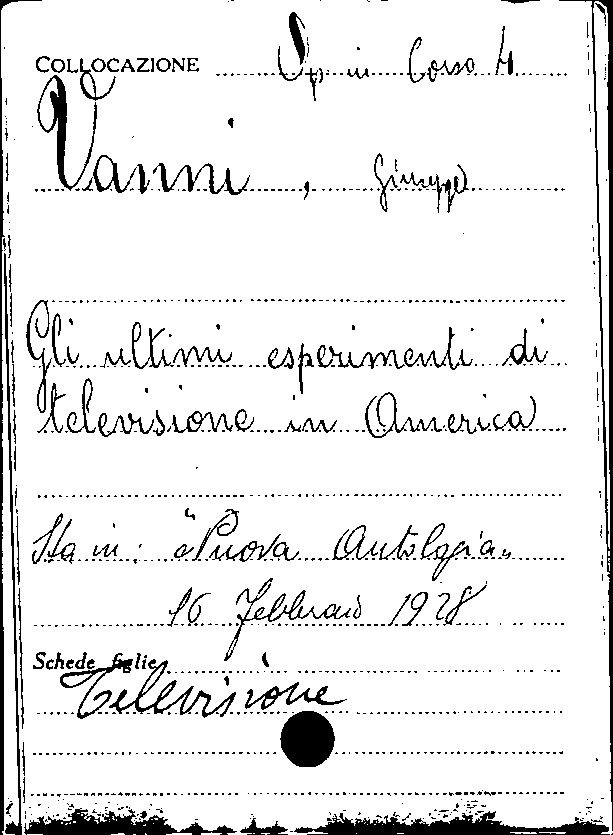 COLLOCAZIONE Sp in Corso 4
Vanni, Giuseppe
Gli ultimi esperimenti di
televisione in America
Sta in: "Nuova Antologia"
16 Febbraio 1928
Schede figlie
Televisione